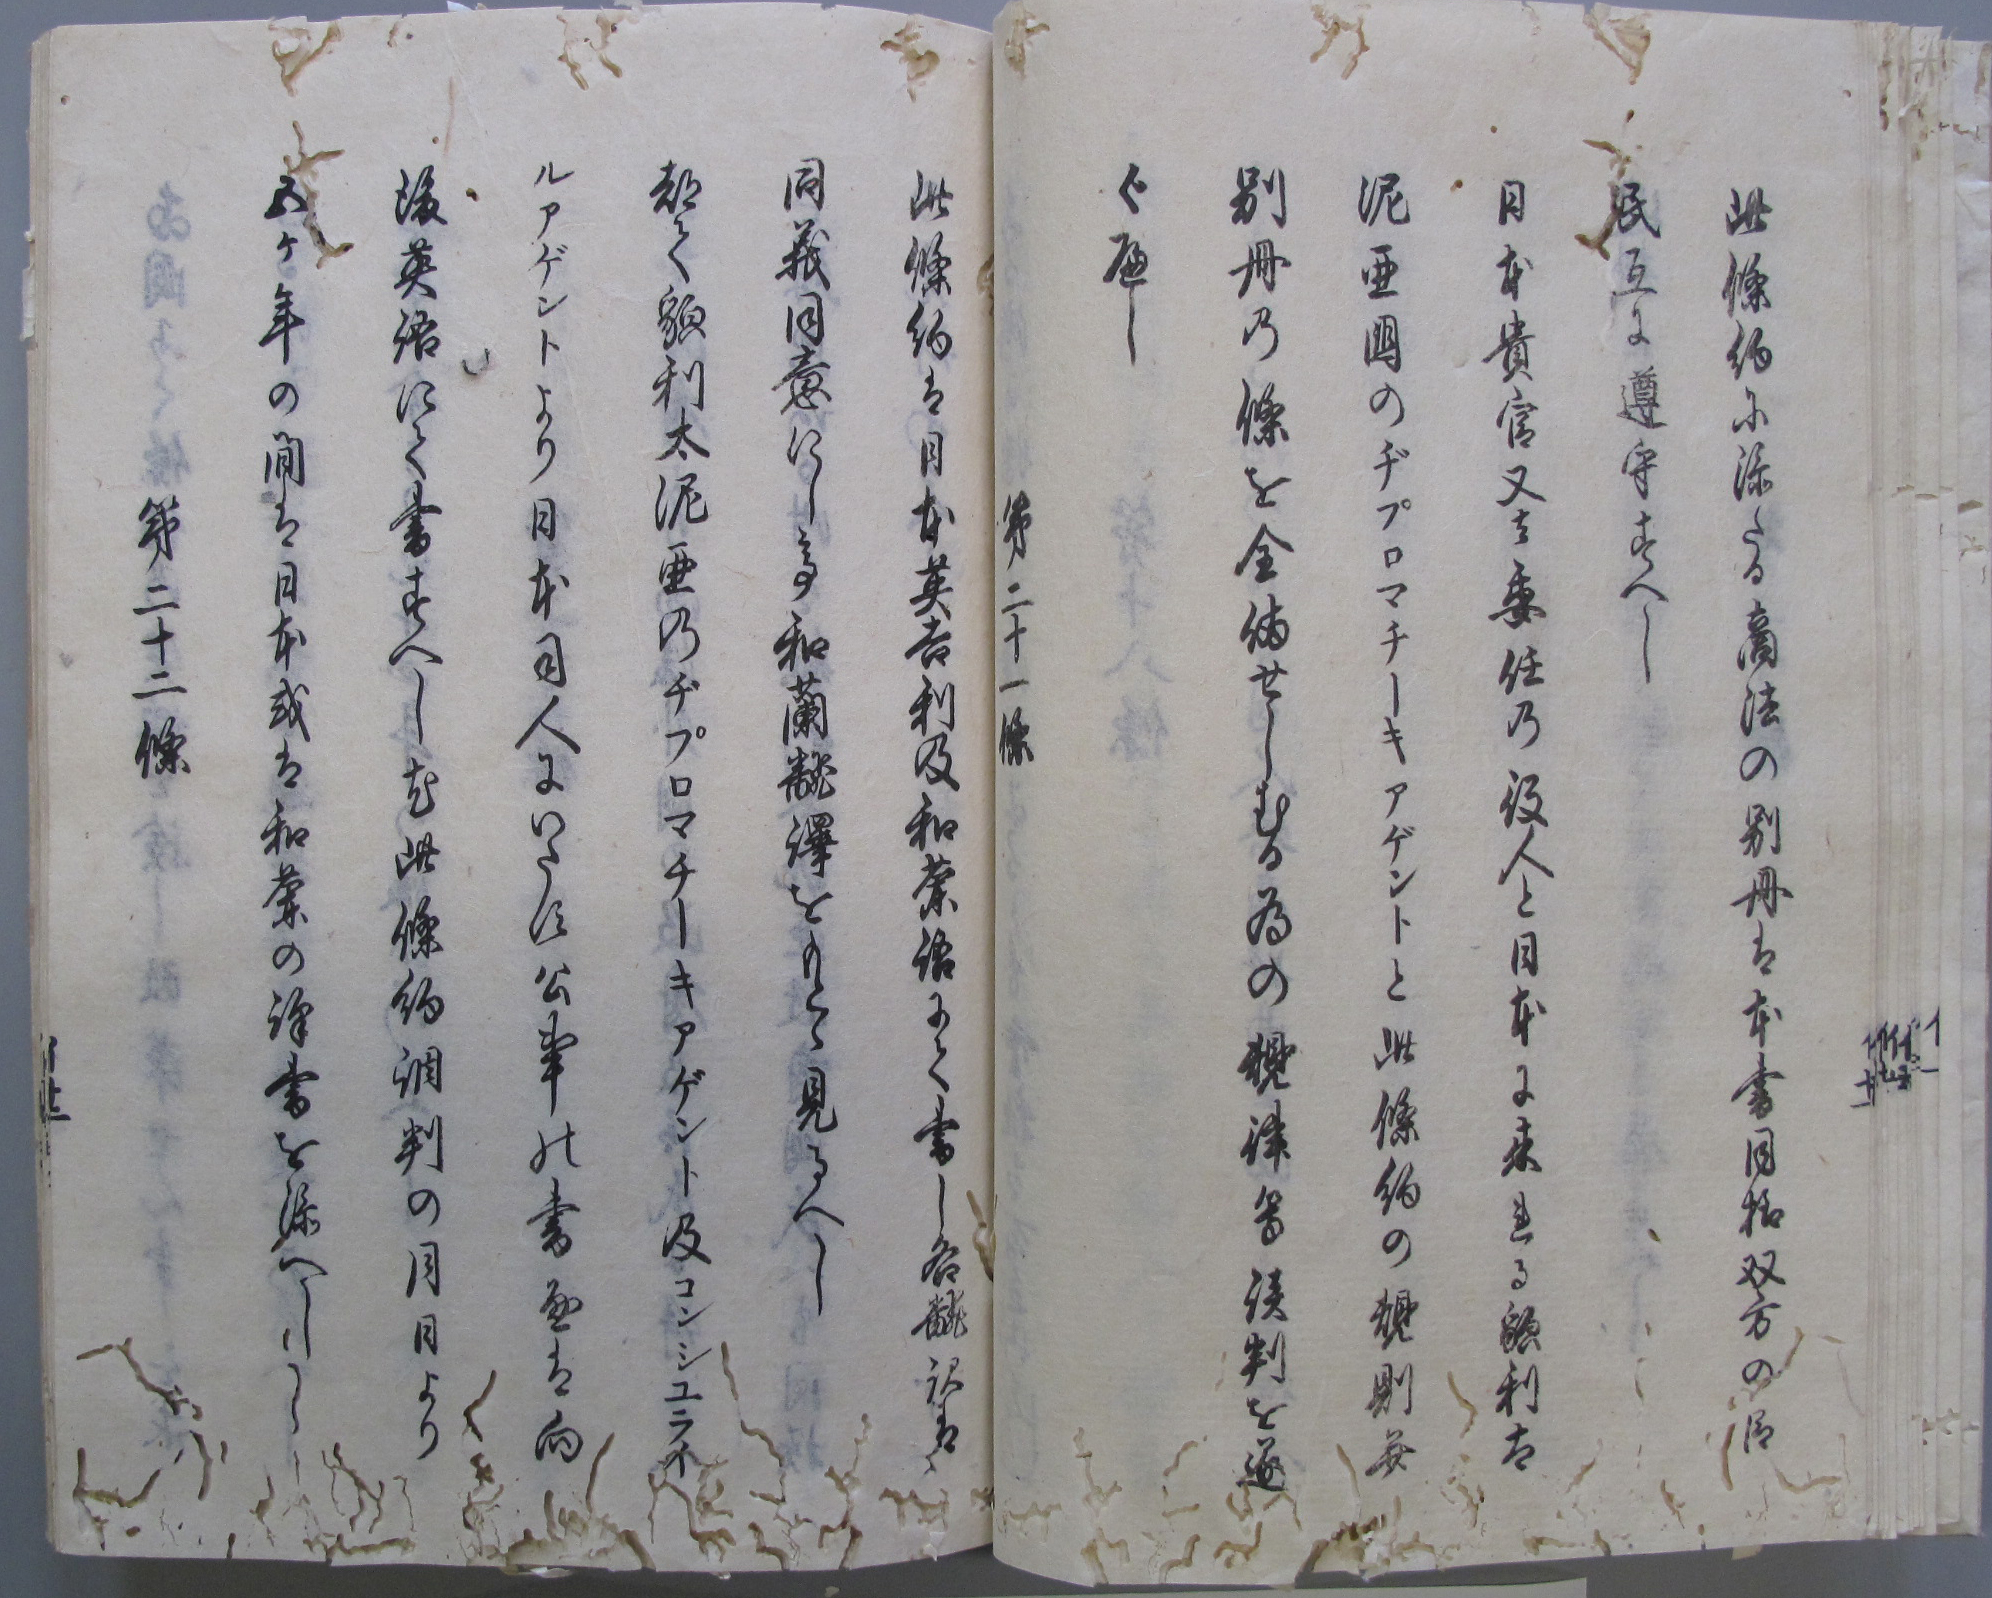 此條約に添たる商法の別冊は本書同樣双方の臣
民互に遵守すへし
日本貴官又は委任の役人と日本に来れる貌利太
泥亜國のヂプロマチーキアゲントと此條約の規則并
別冊の條を全備せしむる為の規律等談判を遂
く
第二十一條
此條約は日本英吉利及和蘭語にて書し各飜訳は
同義同意にし和蘭飜譯をもと見るへし
都て貌利太泥亜乃ヂプロマチーキアゲント及コンシユラ
ルアゲントより日本司人にいたす公事の書通は向
後英語にて書すへし尤此條約調判の月日より
五ケ年の間は日本或は和蘭の譯書を添へし
第二十二條